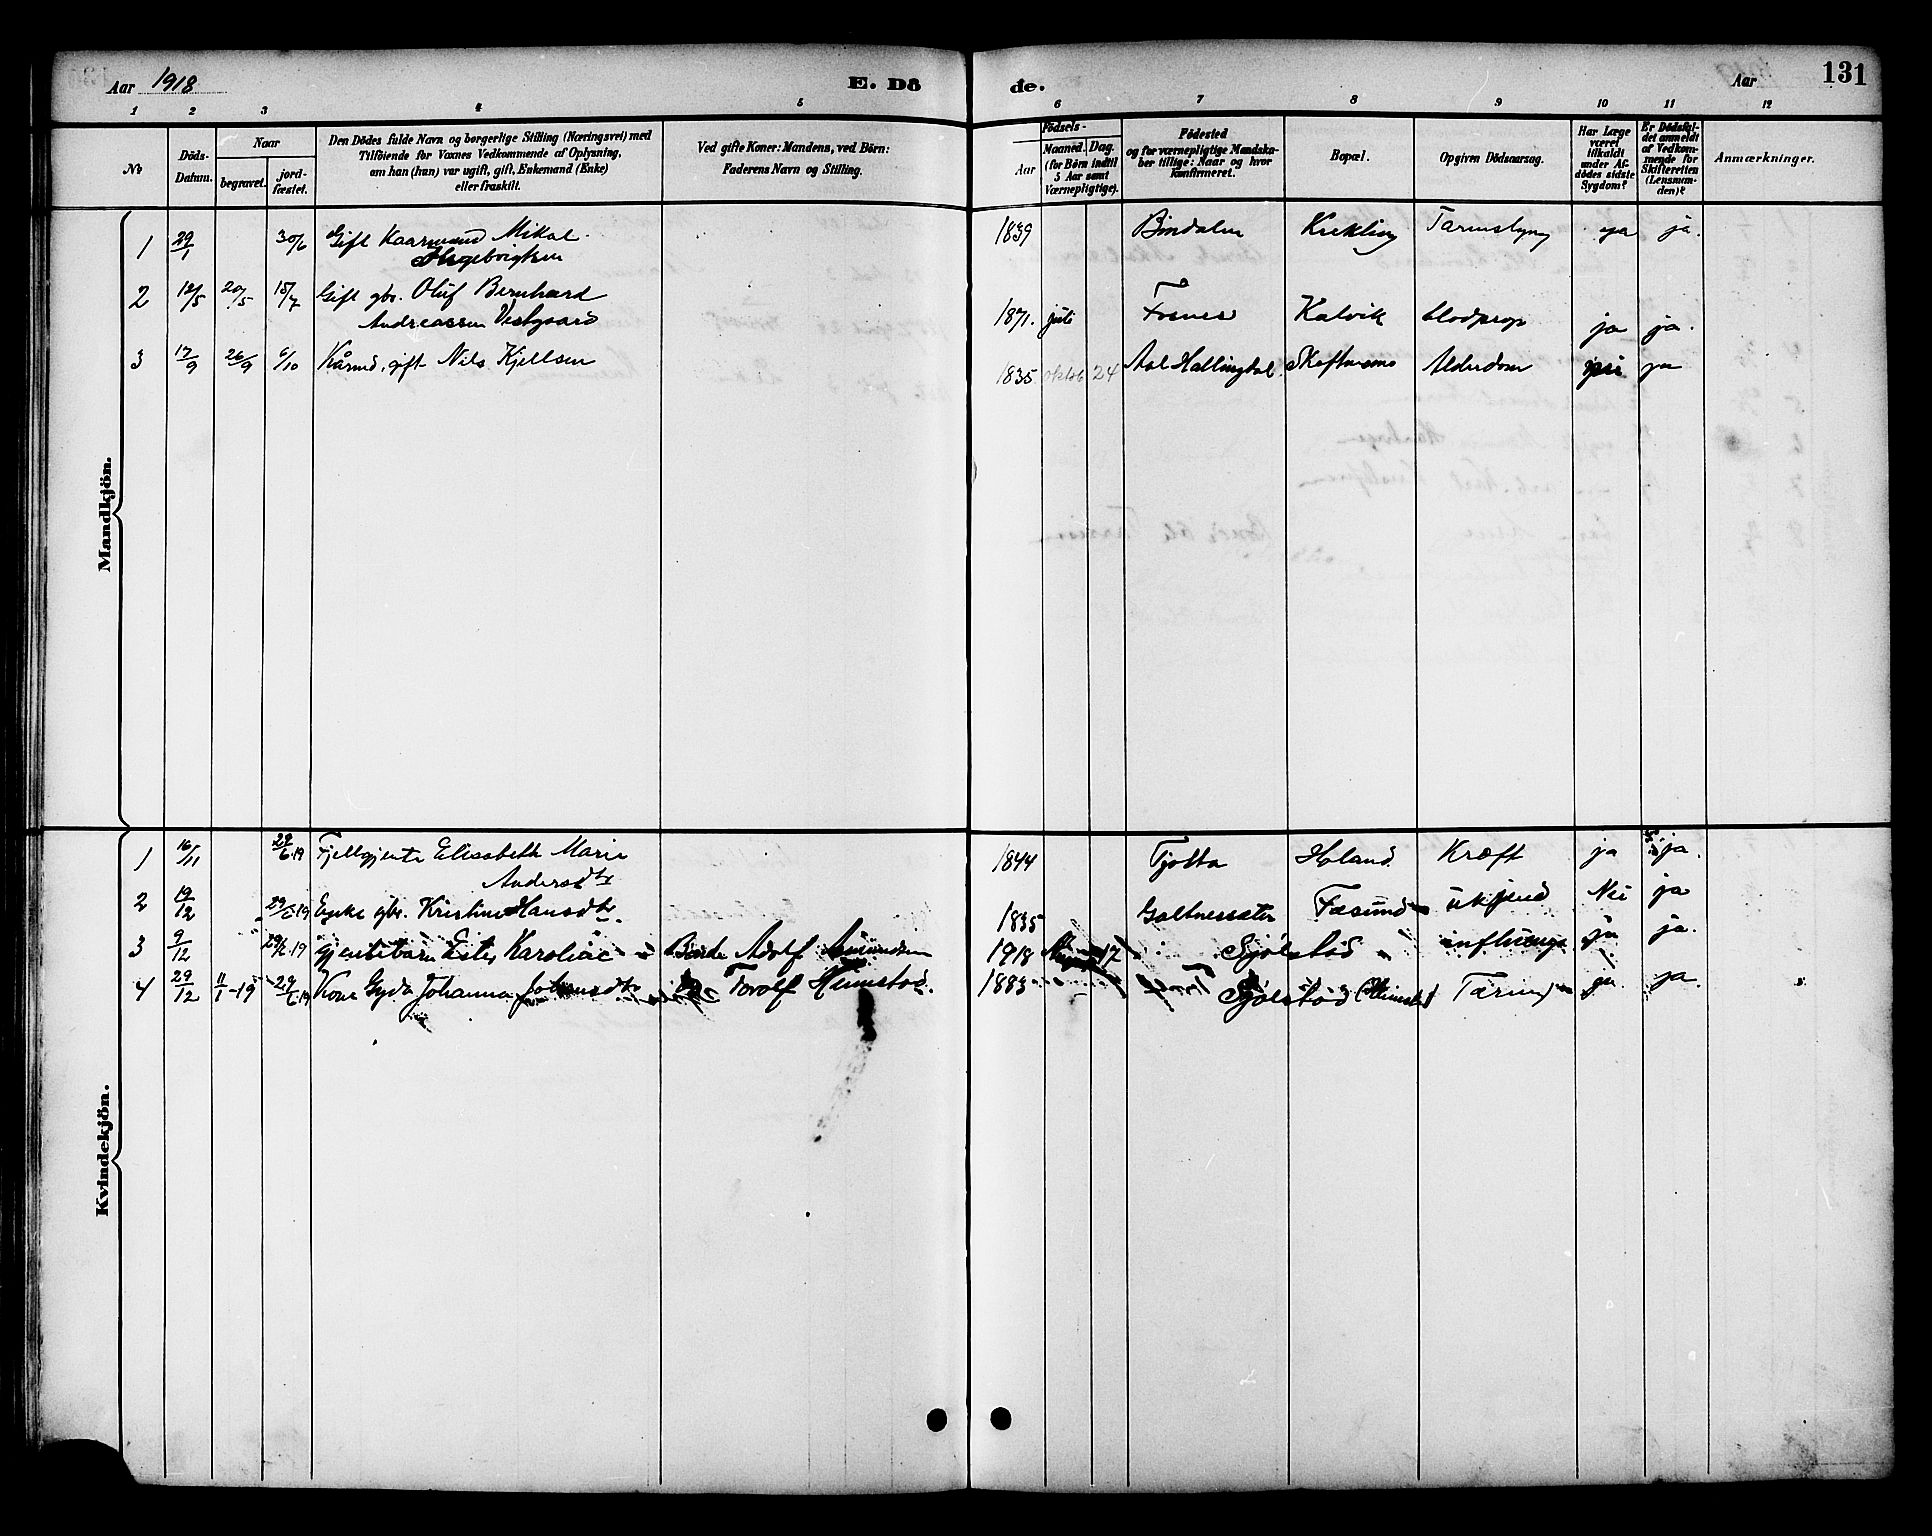 Aar 1918 E. Dö de. Aar 131
1 2 3 4 5 6 7 8 9 10 11 12
№ Döds-Datum. Naar begravet. jord-fæstet. Den Dödes fulde Navn og borgerlige Stilling (Næringsvei) med Tilföiende for Voxnes Vedkommende af Oplysning, om han (hun) var ugift, gift, Enkemand (Enke) eller fraskilt. Ved gifte Koner: Mandens, ved Börn: Faderens Navn og Stilling. Födsels- Aar Maaned. Dag. (for Börn indtil 5 Aar samt Værnepligtige). Födested og for værnepligtige Mandskaber tillige: Naar og hvor konfirmeret. Bopæl. Opgiven Dödsaarsag. Har Læge været tilkaldt under Afdödes sidste Sygdom? Er Dödsfaldet anmeldt af Vedkommende for Skifteretten (Lensmanden)? Anmærkninger.
Mandkjön.
1 29/1 30/6 Gift Kaarmand Mikal 1839 Bindalen Krekling ja ja.
Ingebrigtsen
2 18/5 20/5 15/7 Gift gbr. Oluf Bernhard 1871. juli Fosnes Kalvik blodprop ja ja.
Andreassen Vestgaard
3 17/9 26/9 6/10 Kårmd, gift Nils Kjellsen 1835 oktbr 24 Aal Hallingdal Alderdom ja
Kvindekjön.
1 16/11 29/6.19 Elisabeth Marie 1844 Tjøtta Høland Kræft ja ja.
Andersdtr
2 19/12 29/6.19 Enke gbr. Kristine Hansdtr. 1835 ukjend Nei ja
3 9/12 29/6.19 Pjentebarn Ester Adolf Amundsen 1918 17 Sjølstad influenza ja ja.
4 29/12 11/1-19 29/6.19 Kone Gyda Johanna Torolf Heimstad. 1883 Sjølstad ja ja.